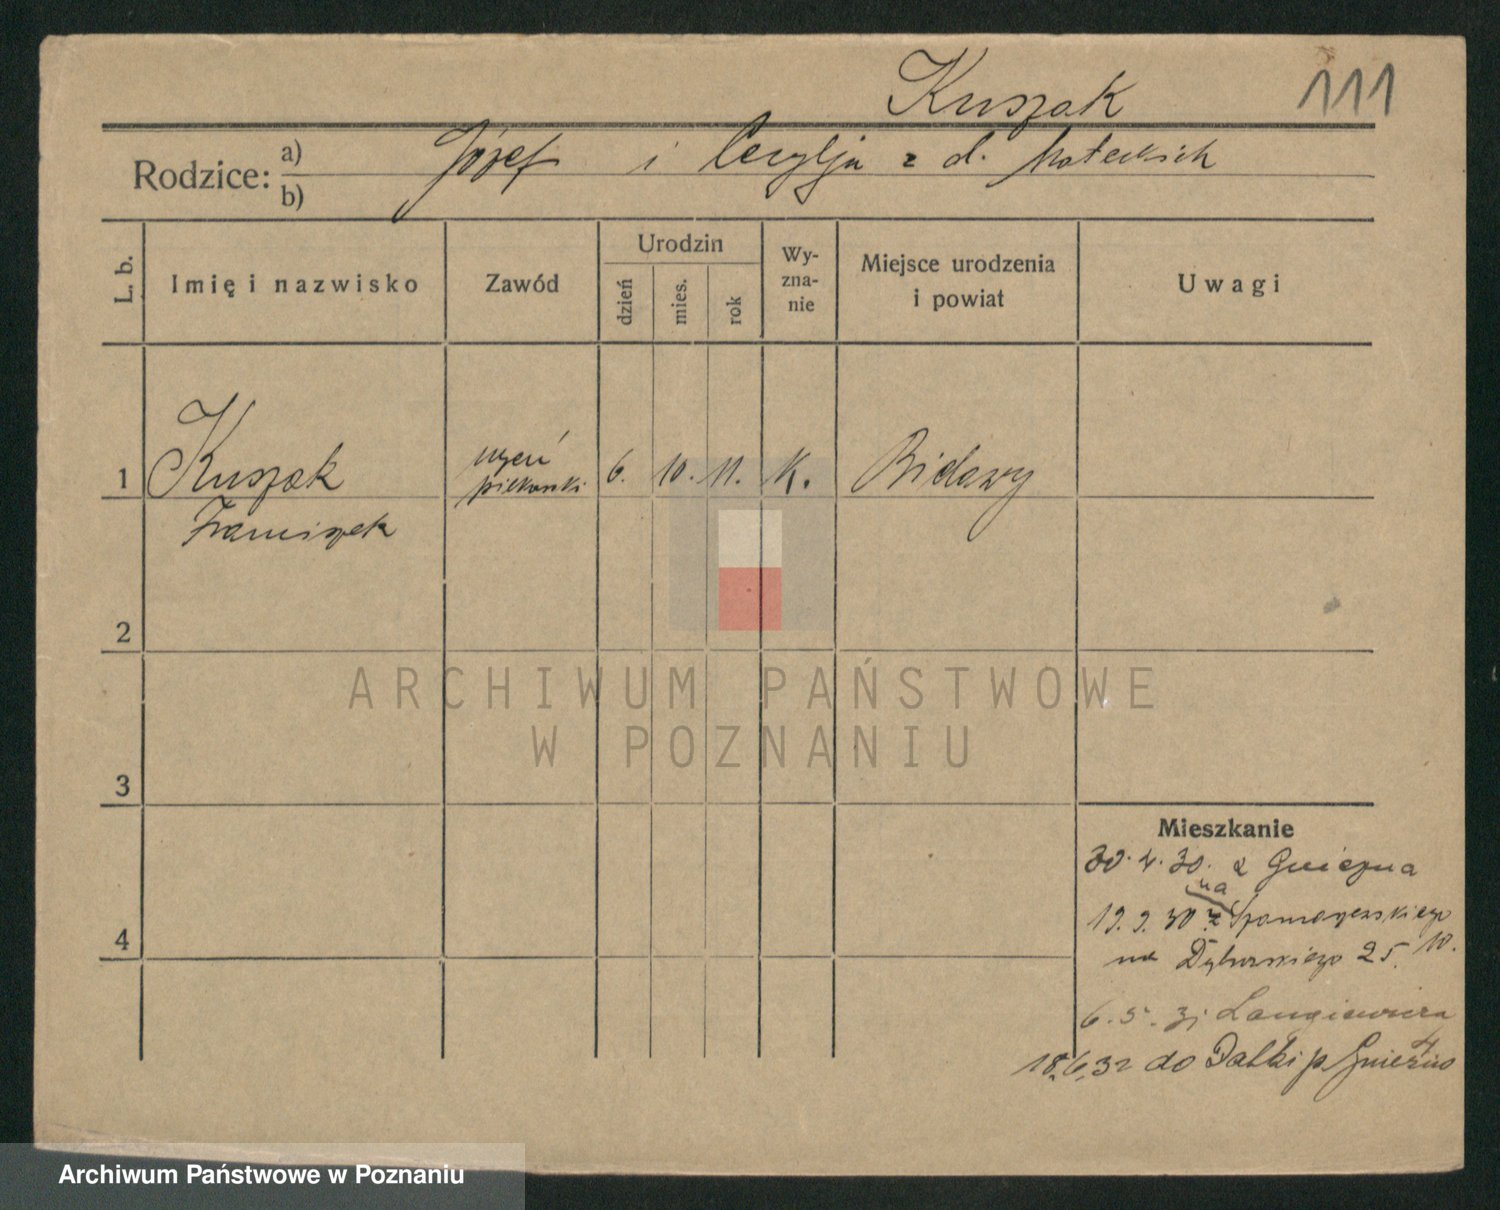 Kuszak 111
Rodzice: a) Józef i Cecylja z d. Małeckich
b)
L. b.
Imię i nazwisko
Zawód
Urodzin
dzień
mies.
rok
Wy-
zna-
nie
Miejsce urodzenia
i powiat
Uwagi
1 Kuszak uczeń 6. 10. 11. k. Bidawy
piekarski
Franciszek
2
ARCHIWUM PAŃSTWOWE
W POZNANIU
3
Mieszkanie
30. 4. 30. z Gniezna
na
19. 9. 30 z
na 25. 10.
6. 5. 31 Langiewicza
4
18.6.32 do Dalki p Gniezno
4
Archiwum Państwowe w Poznaniu